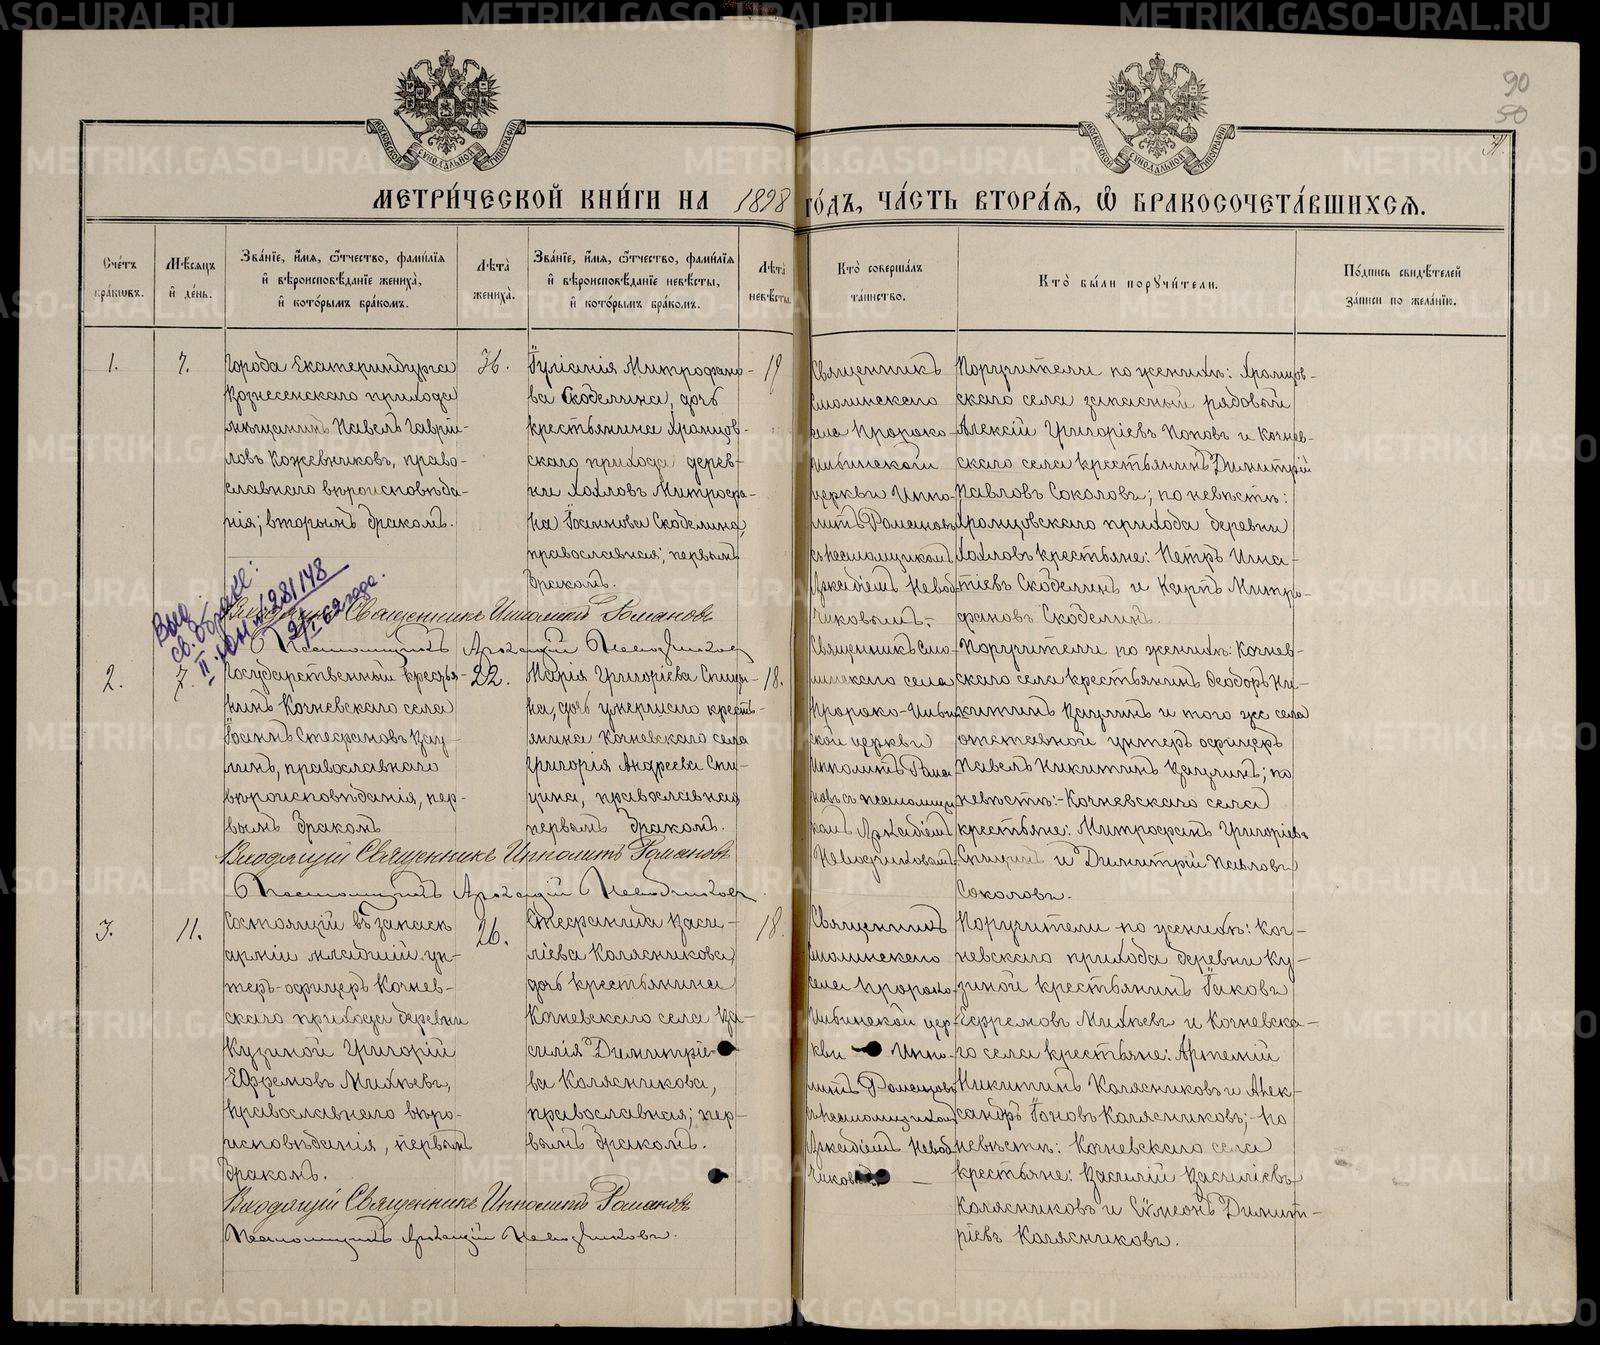 90
50
МОСКОВСКОЙ СѴНОДАЛЬНОЙ ТИПОГРАФІИ
МОСКОВСКОЙ СѴНОДАЛЬНОЙ ТИПОГРАФІИ
МЕТРИ́ЧЕСКОЙ КНИ́ГИ НА 1898 ГО́ДЪ, ЧА́СТЬ ВТОРА́Ѧ, Ѽ БРАКОСОЧЕТА́ВШИХСѦ.
Сче́тъ
бра́кѡвъ.
Мѣ́сѧцъ
и҆ де́нь.
Зва́нїе, и҆́мѧ, ѻ҆́тчество, фами́лїѧ
и҆ вѣроисповѣ́данїе жениха̀,
и҆ кото́рымъ бра́комъ.
Лѣта̀
жениха̀.
Зва́нїе, и҆́мѧ, ѻ҆́тчество, фами́лїѧ
и҆ вѣроисповѣ́данїе невѣ́сты,
и҆ кото́рымъ бра́комъ.
Лѣта̀
невѣ́сты.
Кто̀ соверша́лъ
та́инство.
Кто̀ бы́ли порꙋчи́тели.
По́дпись свидѣ́телей
за́писи по жела́нїю.
1.
7.
Города Екатеринбурга
Вознесенскаго прихода
мѣщанинъ Павелъ Гаврій-
ловъ Кожевниковъ, право-
славнаго вѣроисповѣда-
нія; вторымъ бракомъ.
36.
Іуліанія Митрофано-
ва Скобелина, дочь
крестьянина Храмцов-
скаго прихода дерев-
ни Хохловъ Митрофа-
на Іоаннова Скобелина,
православная; первымъ
бракомъ.
19
Священникъ
Смолинскаго
села Пророко-
Ильинской
церкви Иппо-
литъ Романовъ
съ псаломщикомъ
Аркадіемъ Невод-
чиковымъ.-
Поручители по женихѣ: Храмцов-
скаго села запасный рядовый
Алексій Григоріевъ Поповъ и Кочнев-
скаго села крестьянинъ Димитрій
Павловъ Соколовъ; по невѣстѣ:
Храмцовскаго прихода деревни
Хохловъ крестьяне: Петръ Игна-
тіевъ Скобелинъ и Карпъ Митро-
фановъ Скобелинъ.
св. о браке:
Священникъ Ипполитъ Романовъ
Псаломщикъ Аркадій Неводчиковъ
2.
7.
Государственный крестья-
нинъ Кочневскаго села
Іоаннъ Стефановъ Вау-
линъ, православнаго
вѣроисповѣданія, пер-
вымъ бракомъ
22.
Марія Григоріева Спици-
на, дочь умершаго кресть-
янина Кочневскаго села
Григорія Андреева Спи-
цина, православная
первымъ бракомъ.
18.
Священникъ Смо-
линскаго села
Пророко-Ильин
ской церкви
Ипполитъ Рома
новъ съ псаломщи
комъ Аркадіемъ
Неводчиковымъ
Поручители по женихѣ: Кочнев-
скаго села крестьянинъ Ѳеодоръ Ни-
китинъ Ваулинъ и того же села
отставной унтеръ офицеръ
Павелъ Никитинъ Ваулинъ; по
невѣстѣ:-Кочневскаго села
крестьяне: Митрофанъ Григоріевъ
Спицинъ и Димитрій Павловъ
Соколовъ.
Входящій Священникъ Ипполитъ Романовъ
Псаломщикъ Аркадій Неводчиковъ.
3.
11.
Состоящій въ запасѣ
арміи младшій ун-
теръ-офицеръ Кочнев-
скаго прихода деревни
Кузиной Григорій
Ефремовъ Михѣевъ,
православнаго вѣро-
исповѣданія, первымъ
бракомъ.
26.
Стефанида Васи-
ліева Колясникова,
дочь крестьянина
Кочневскаго села Ва-
силія Димитріе-
ва Колясникова,
православная; пер-
вымъ бракомъ.
18.
Священникъ
Смолинскаго
села Пророко-
Ильинской цер-
кви Иппо-
литъ Романовъ
съ псаломщикомъ
Аркадіемъ Невод-
чиковымъ. —
Поручители по женихѣ: Коч-
невскаго прихода деревни Ку-
зиной крестьянинъ Іаковъ
Ефремовъ Михѣевъ и Кочневска-
го села крестьяне: Артемій
Никитинъ Колясниковъ и Алек-
сандръ Іоновъ Колясниковъ;-по
невѣстѣ: Кочневскаго села
крестьяне: Василій Василіевъ
Колясниковъ и Сѵмеонъ Димит-
ріевъ Колясниковъ.
Входящій Священникъ Ипполитъ Романовъ
Псаломщикъ Аркадій Неводчиковъ.
METRIKI.GASO-URAL.RU